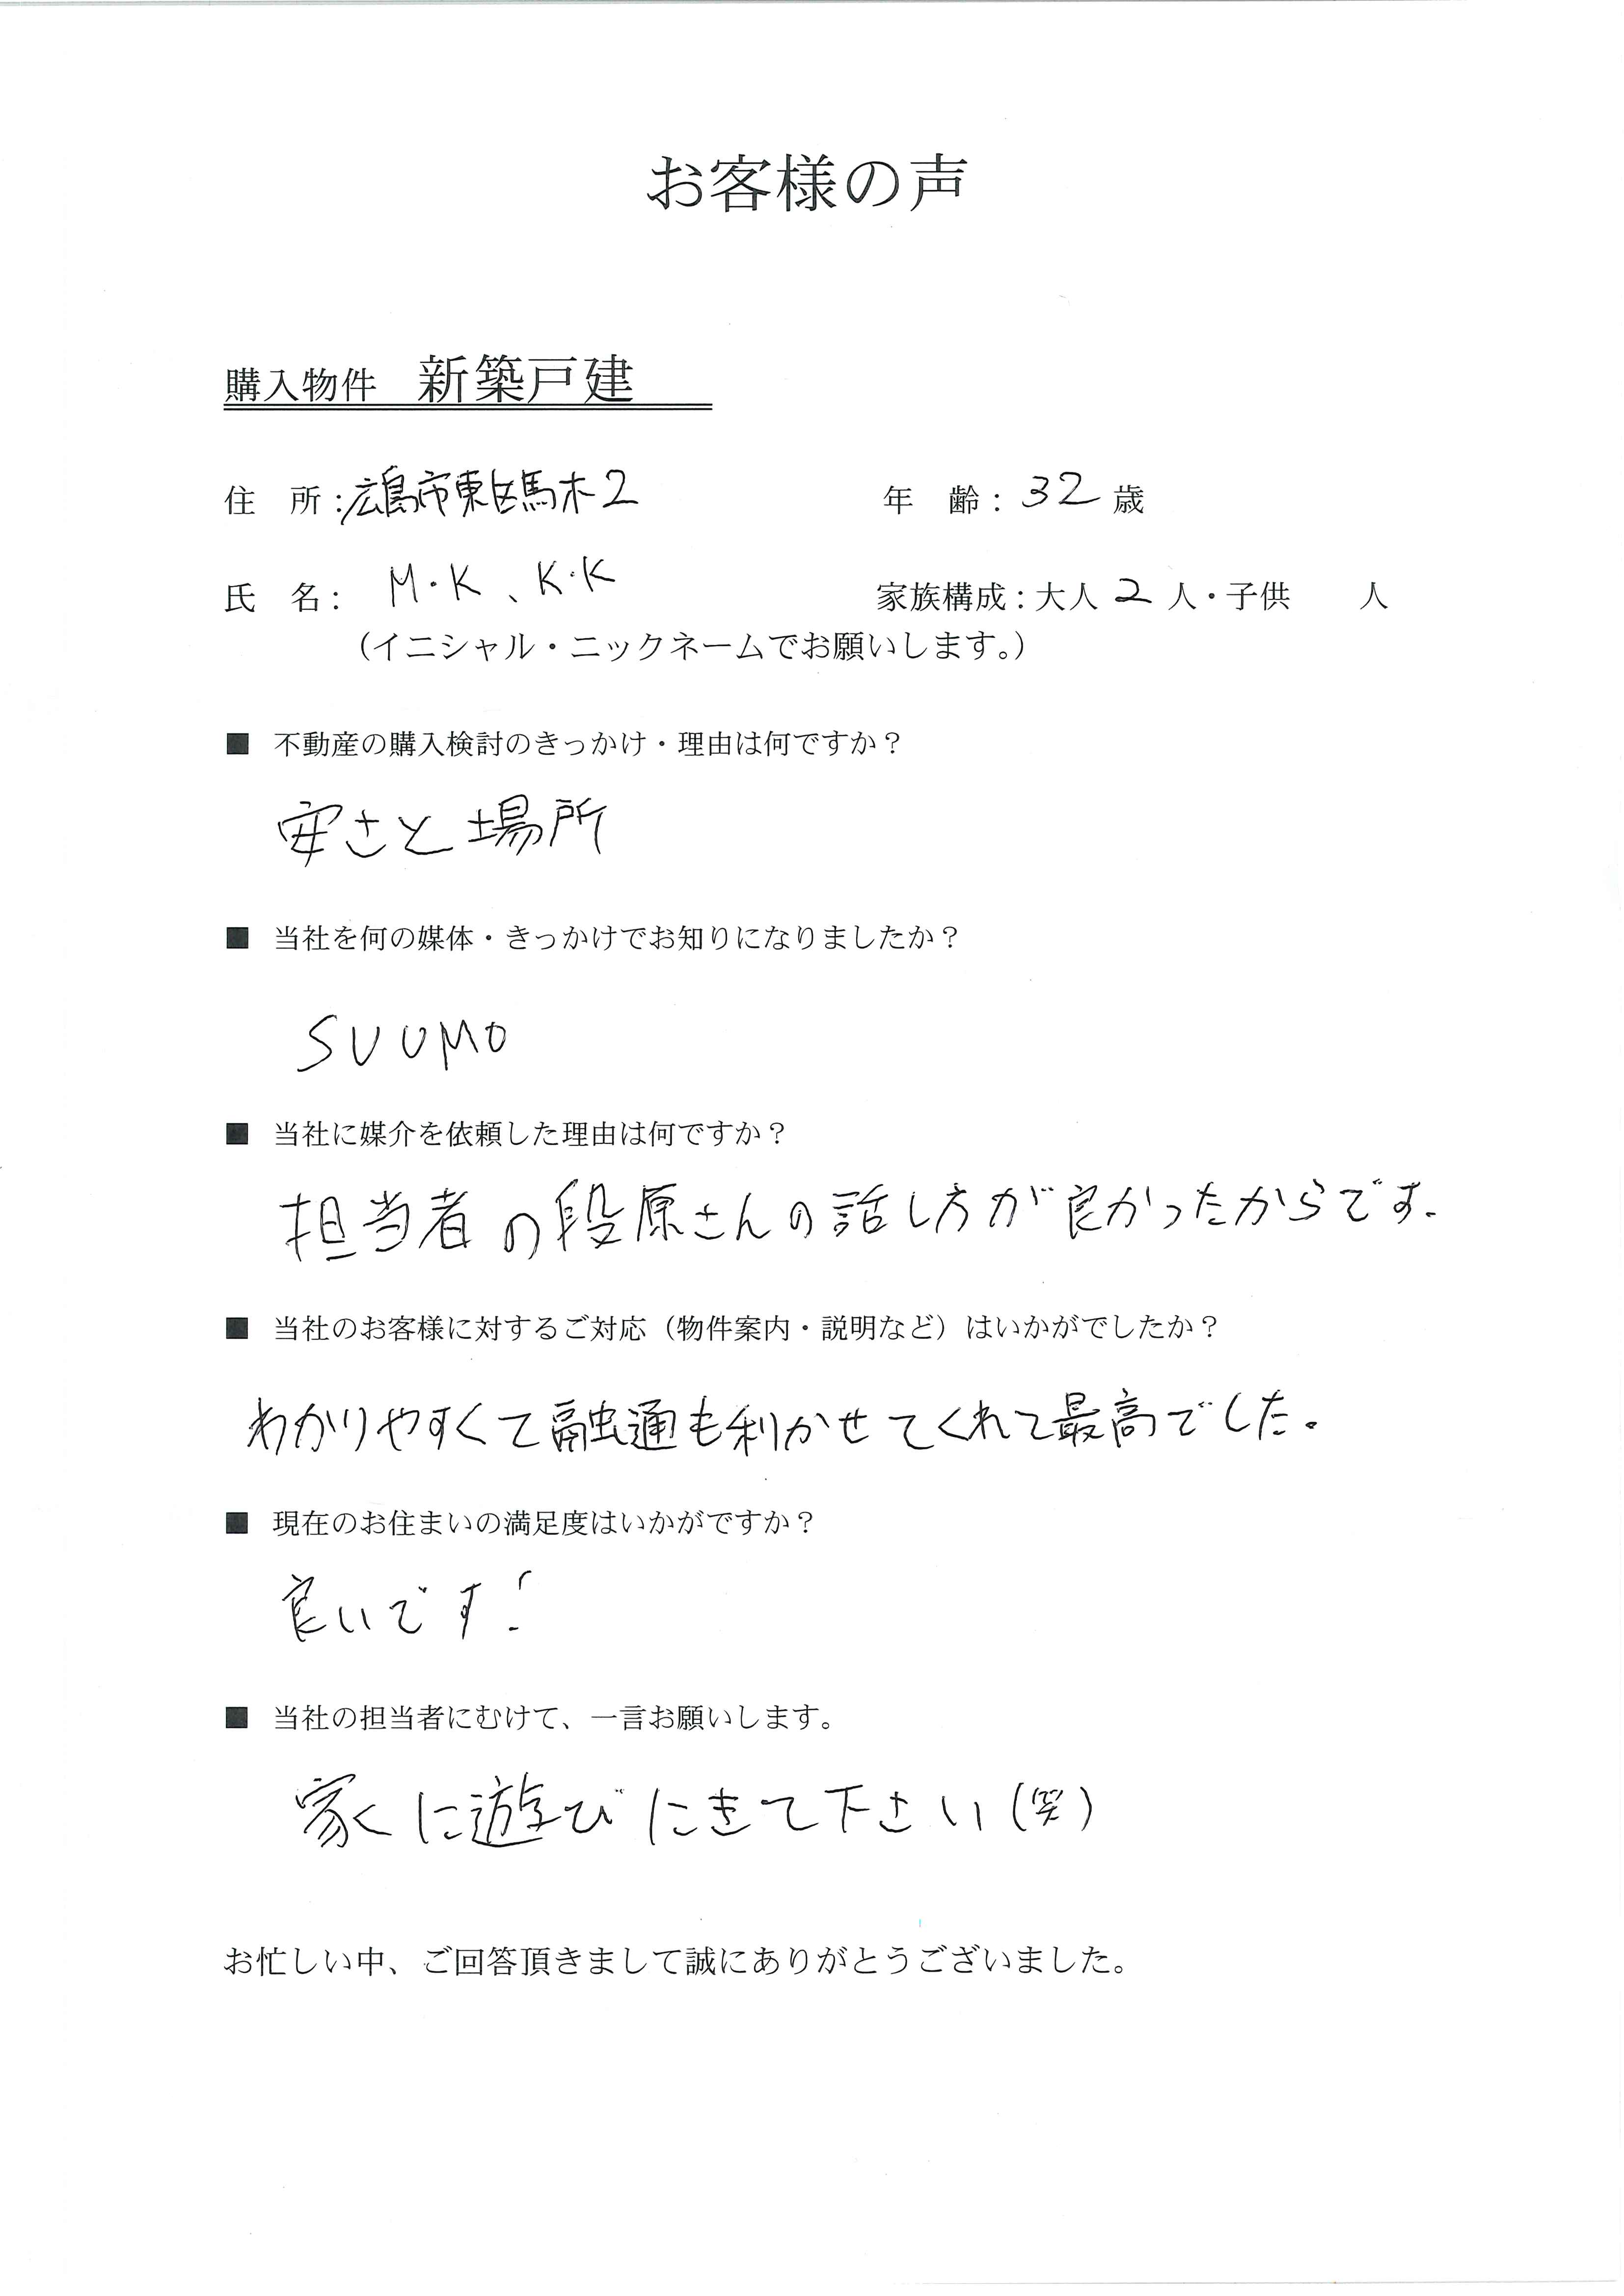 お客様の声
購入物件 新築戸建
住 所:広島市東区馬木2 年 齢:32歳
氏 名: M・K、K・K 家族構成:大人 2 人・子供 人
(イニシャル・ニックネームでお願いします。)
■ 不動産の購入検討のきっかけ・理由は何ですか?
安さと場所
■ 当社を何の媒体・きっかけでお知りになりましたか?
SUUMO
■ 当社に媒介を依頼した理由は何ですか?
担当者の段原さんの話し方が良かったからです.
■ 当社のお客様に対するご対応(物件案内・説明など)はいかがでしたか?
わかりやすくて融通も利かせてくれて最高でした。
■ 現在のお住まいの満足度はいかがですか?
良いです!
■ 当社の担当者にむけて、一言お願いします。
家に遊びにきて下さい(笑)
お忙しい中、ご回答頂きまして誠にありがとうございました。